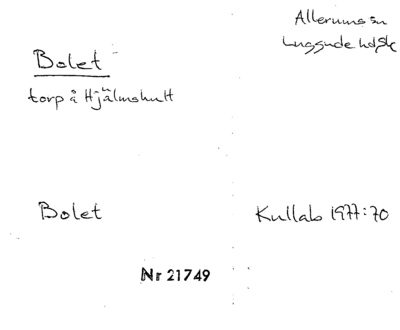 Allerums sn
Luggude hd, Sk
Bolet
torp å Hjälmshult
Bolet
Kullab 1977:70
Nr 21749